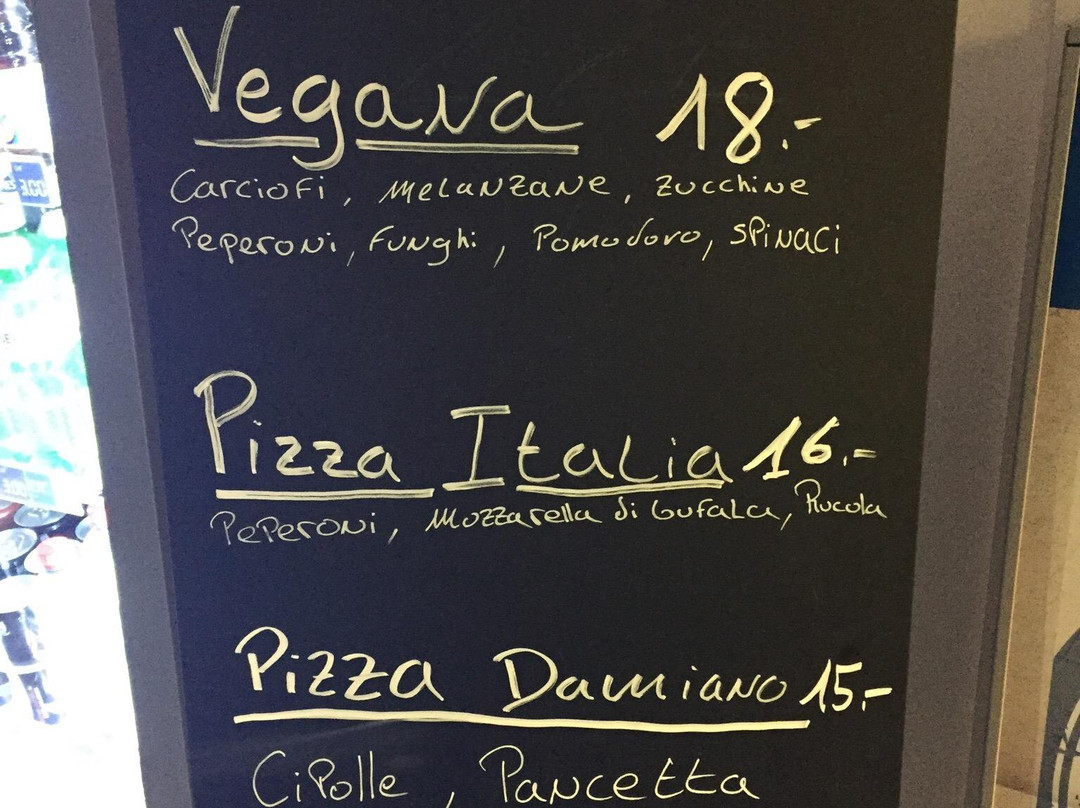 Vegana 18.-
Carciofi, Melanzane, Zucchine
Peperoni, Funghi, Pomodoro, Spinaci
Pizza Italia 16.-
Peperoni, Mozzarella di bufala, Rucola
Pizza Damiano 15.-
Cipolle, Pancetta